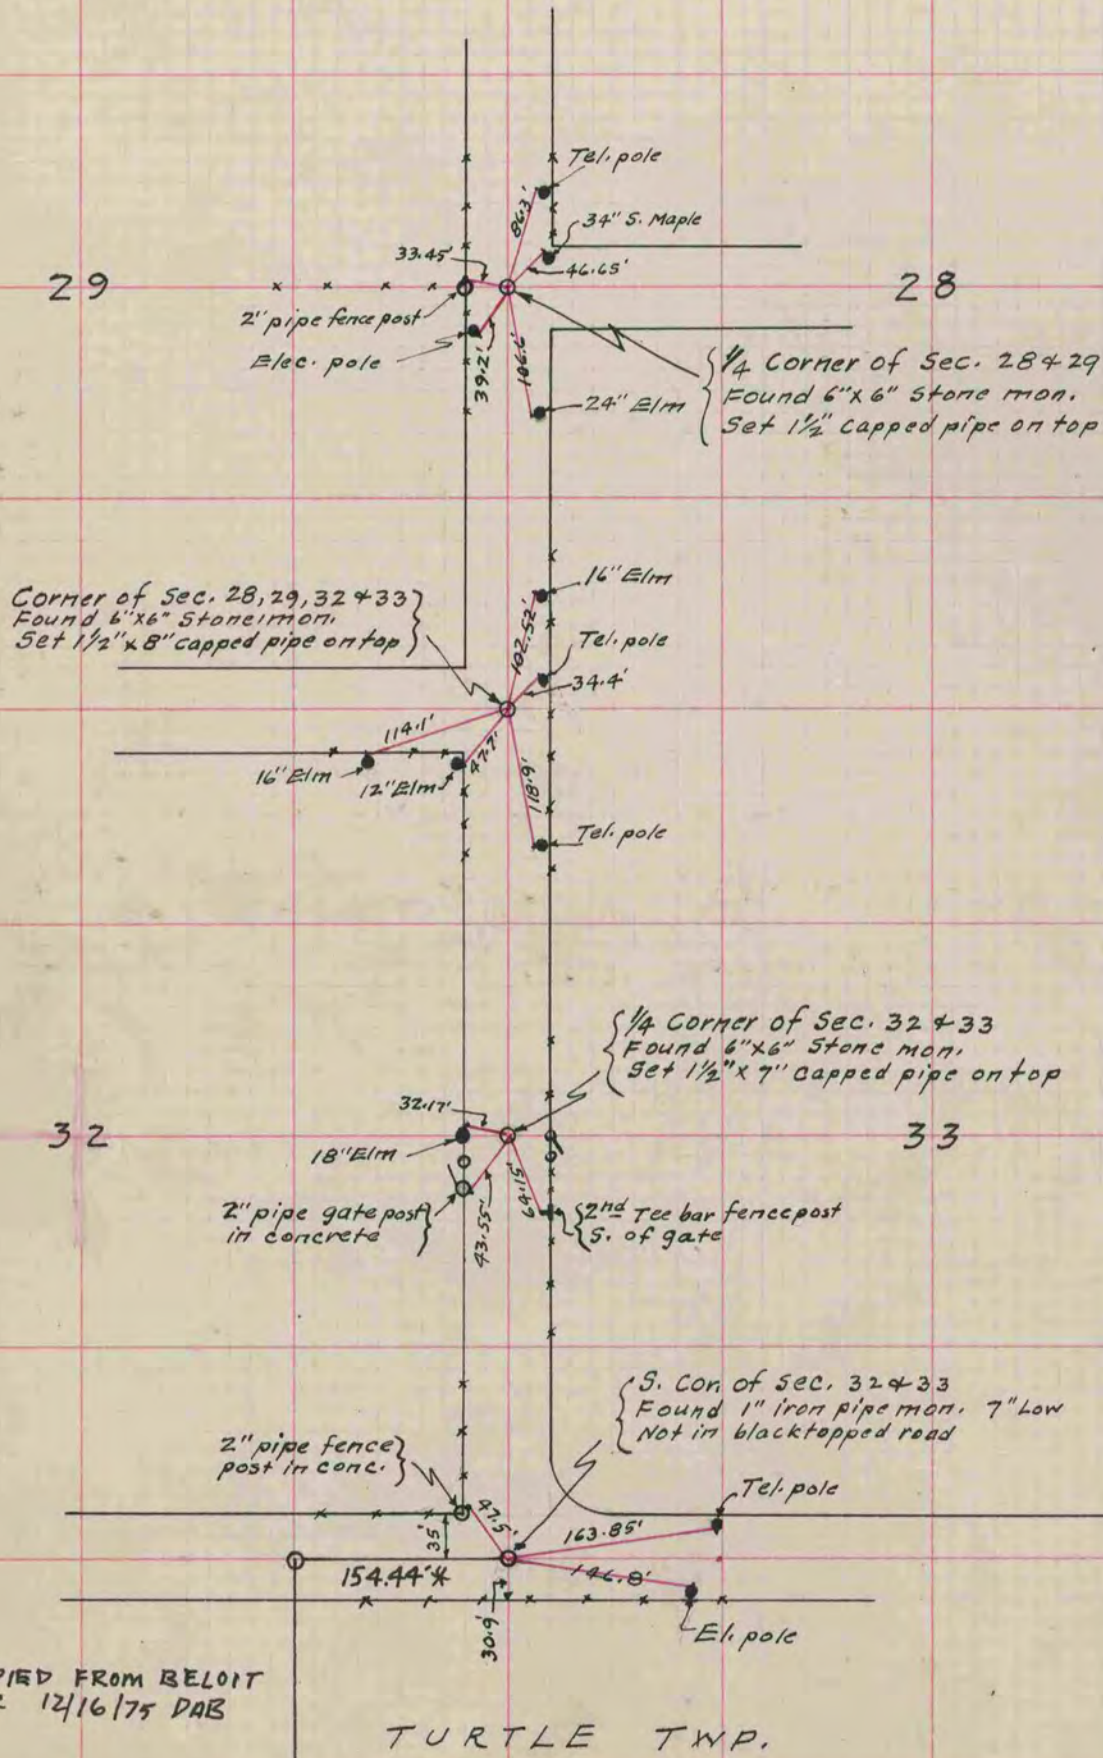 Tel. pole
86.3'
34" S. Maple
33.45'
46.65'
29
28
2" pipe fence post
Elec. pole
39.2'
24" Elm
1/4 Corner of Sec. 28 & 29
Found 6"x6" Stone mon.
Set 1 1/2" capped pipe on top
16" Elm
Corner of Sec. 28, 29, 32 & 33
Found 6"x6" Stone mon.
Set 1 1/2" x 8" capped pipe on top
102.52'
Tel. pole
34.4'
114.1'
47.7'
16" Elm
12" Elm
118.9'
Tel. pole
1/4 Corner of Sec. 32 & 33
Found 6"x6" Stone mon.
Set 1 1/2" x 7" capped pipe on top
32.17'
32
33
18" Elm
2" pipe gate post
in concrete
43.55'
64.15'
2nd Tee bar fence post
S. of gate
S. Cor. of Sec. 32 & 33
Found 1" iron pipe mon. 7" Low
Not in blacktopped road
2" pipe fence
post in conc.
Tel. pole
47.5'
35'
163.85'
154.44'*
146.8'
30.9'
El. pole
PIED FROM BELOIT
12/16/75 DAB
TURTLE TWP.